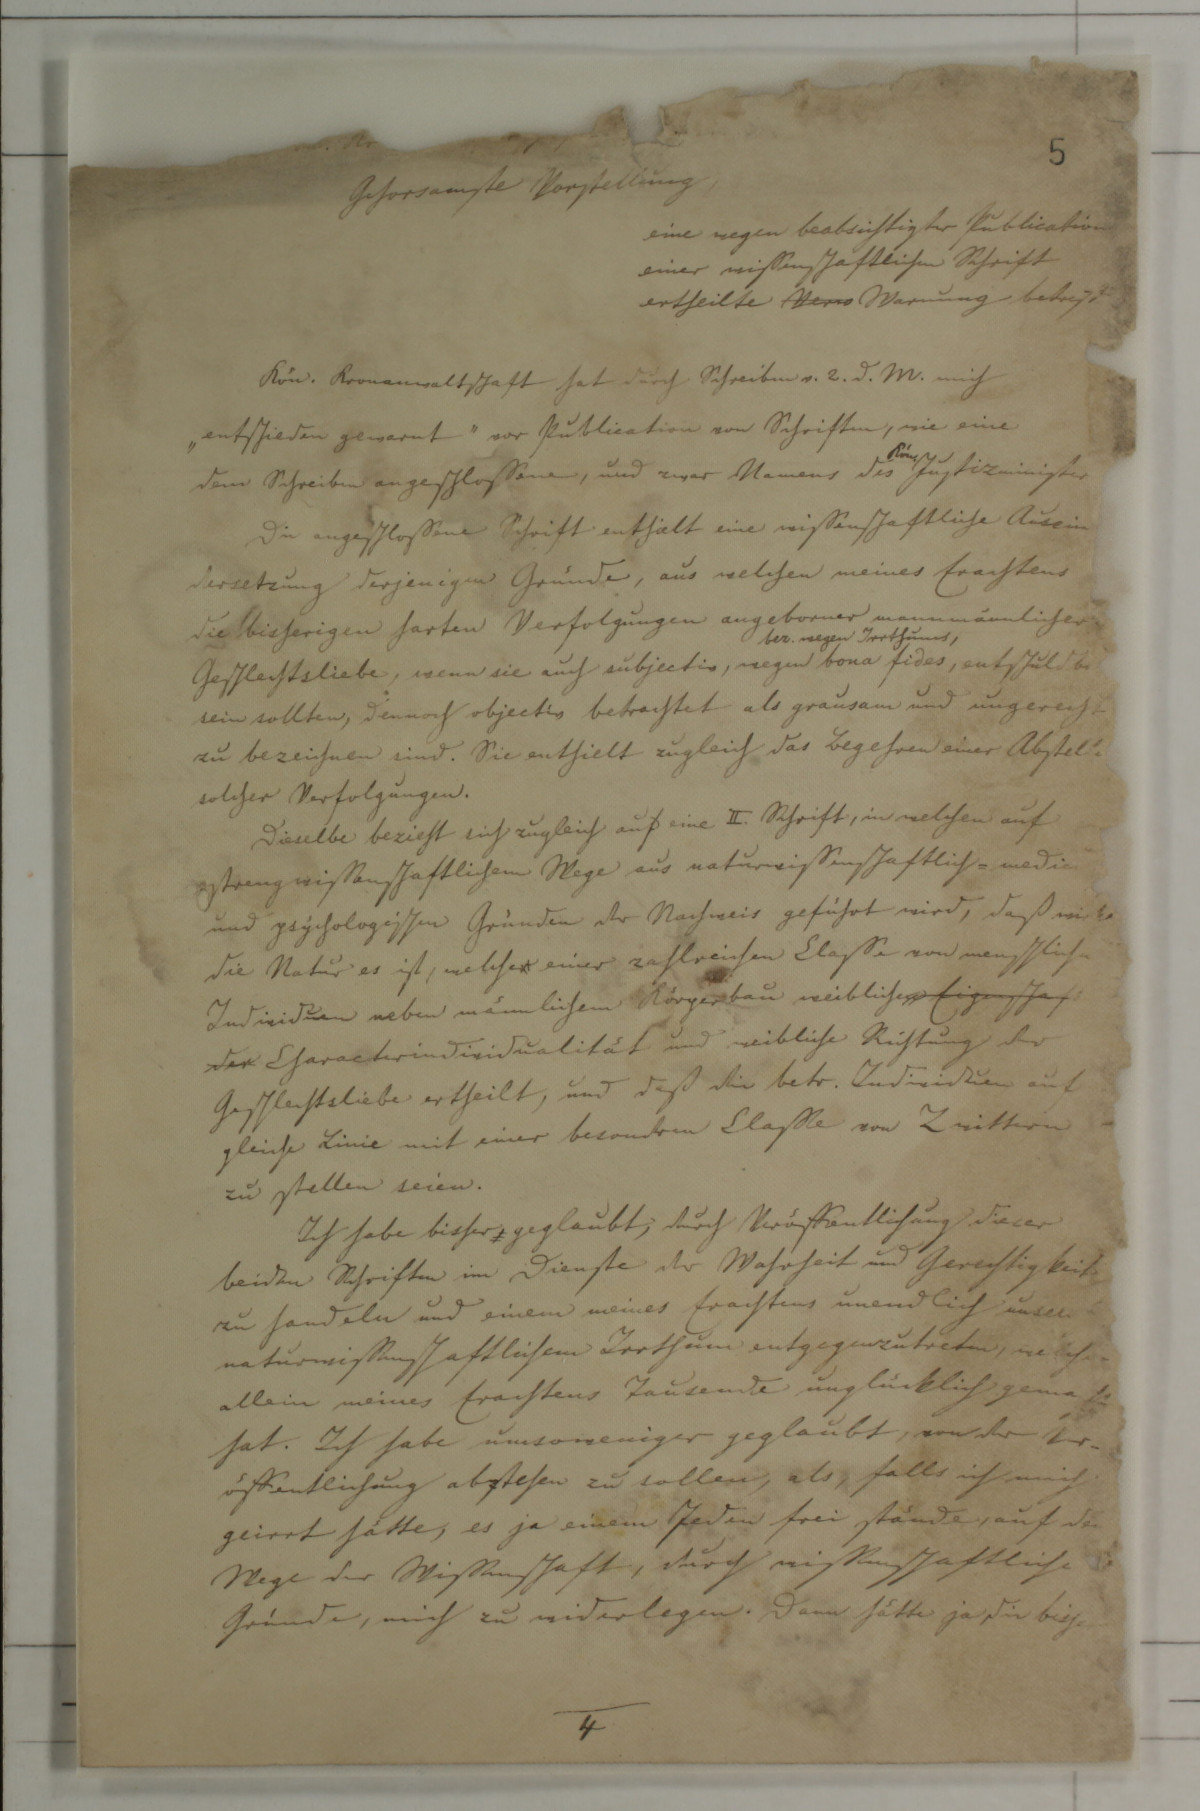 5
Gehorsamste Vorstellung,
eine wegen beabsichtigter Publication
einer wissenschaftlichen Schrift
ertheilte Warnung betreff.
Kön. Kronanwaltschaft hat durch Schreiben v. 2. d. M. mich
„entschieden gewarnt" vor Publication von Schriften, wie eine
dem Schreiben angeschlossene, und zwar Namens des Kön. Justizminister
Die angeschlossene Schrift enthält eine wissenschaftliche Ausein
dersetzung derjenigen Gründe, aus welchen meines Erachtens
die bisherigen harten Verfolgungen angeborner mannmännlicher
bez. wegen Irrthums,
Geschlechtsliebe, wenn sie auch subjectiv, wegen bona fides, entschuldb
sein sollten, dennoch objectiv betrachtet als grausam und ungerecht
zu bezeichnen sind. Sie enthielt zugleich das Begehren einer Abstell
solcher Verfolgungen.
Dieselbe bezieht sich zugleich auf eine II. Schrift, in welchen auf
streng wissenschaftlichem Wege aus naturwissenschaftlich-medic
und psychologischen Gründen der Nachweis geführt wird, daß
die Natur es ist, welche einer zahlreichen Classe von menschlich
Individuen neben männlichem Körperbau weibliche Eigenschaf
der Characterindividualität und weibliche Richtung der
Geschlechtsliebe ertheilt, und daß die betr. Individuen auf
gleiche Linie mit einer besondren Classe von Zwittern
zu stellen seien.
Ich habe bisher geglaubt, durch Veröffentlichung dieser
beiden Schriften im Dienste der Wahrheit und Gerechtigkeit
zu handeln und einem meines Erachtens unendlich
naturwissenschaftlichem Irrthum entgegenzutreten, welche
allein meines Erachtens Tausende unglücklich gemacht
hat. Ich habe umsoweniger geglaubt, von der Ver-
öffentlichung abstehen zu sollen, als, falls ich mich
geirrt hätte, es ja einem Jeden frei stände, auf de
Wege der Wissenschaft, durch wissenschaftliche
Gründe, mich zu widerlegen. Dann hätte ja die bish
4